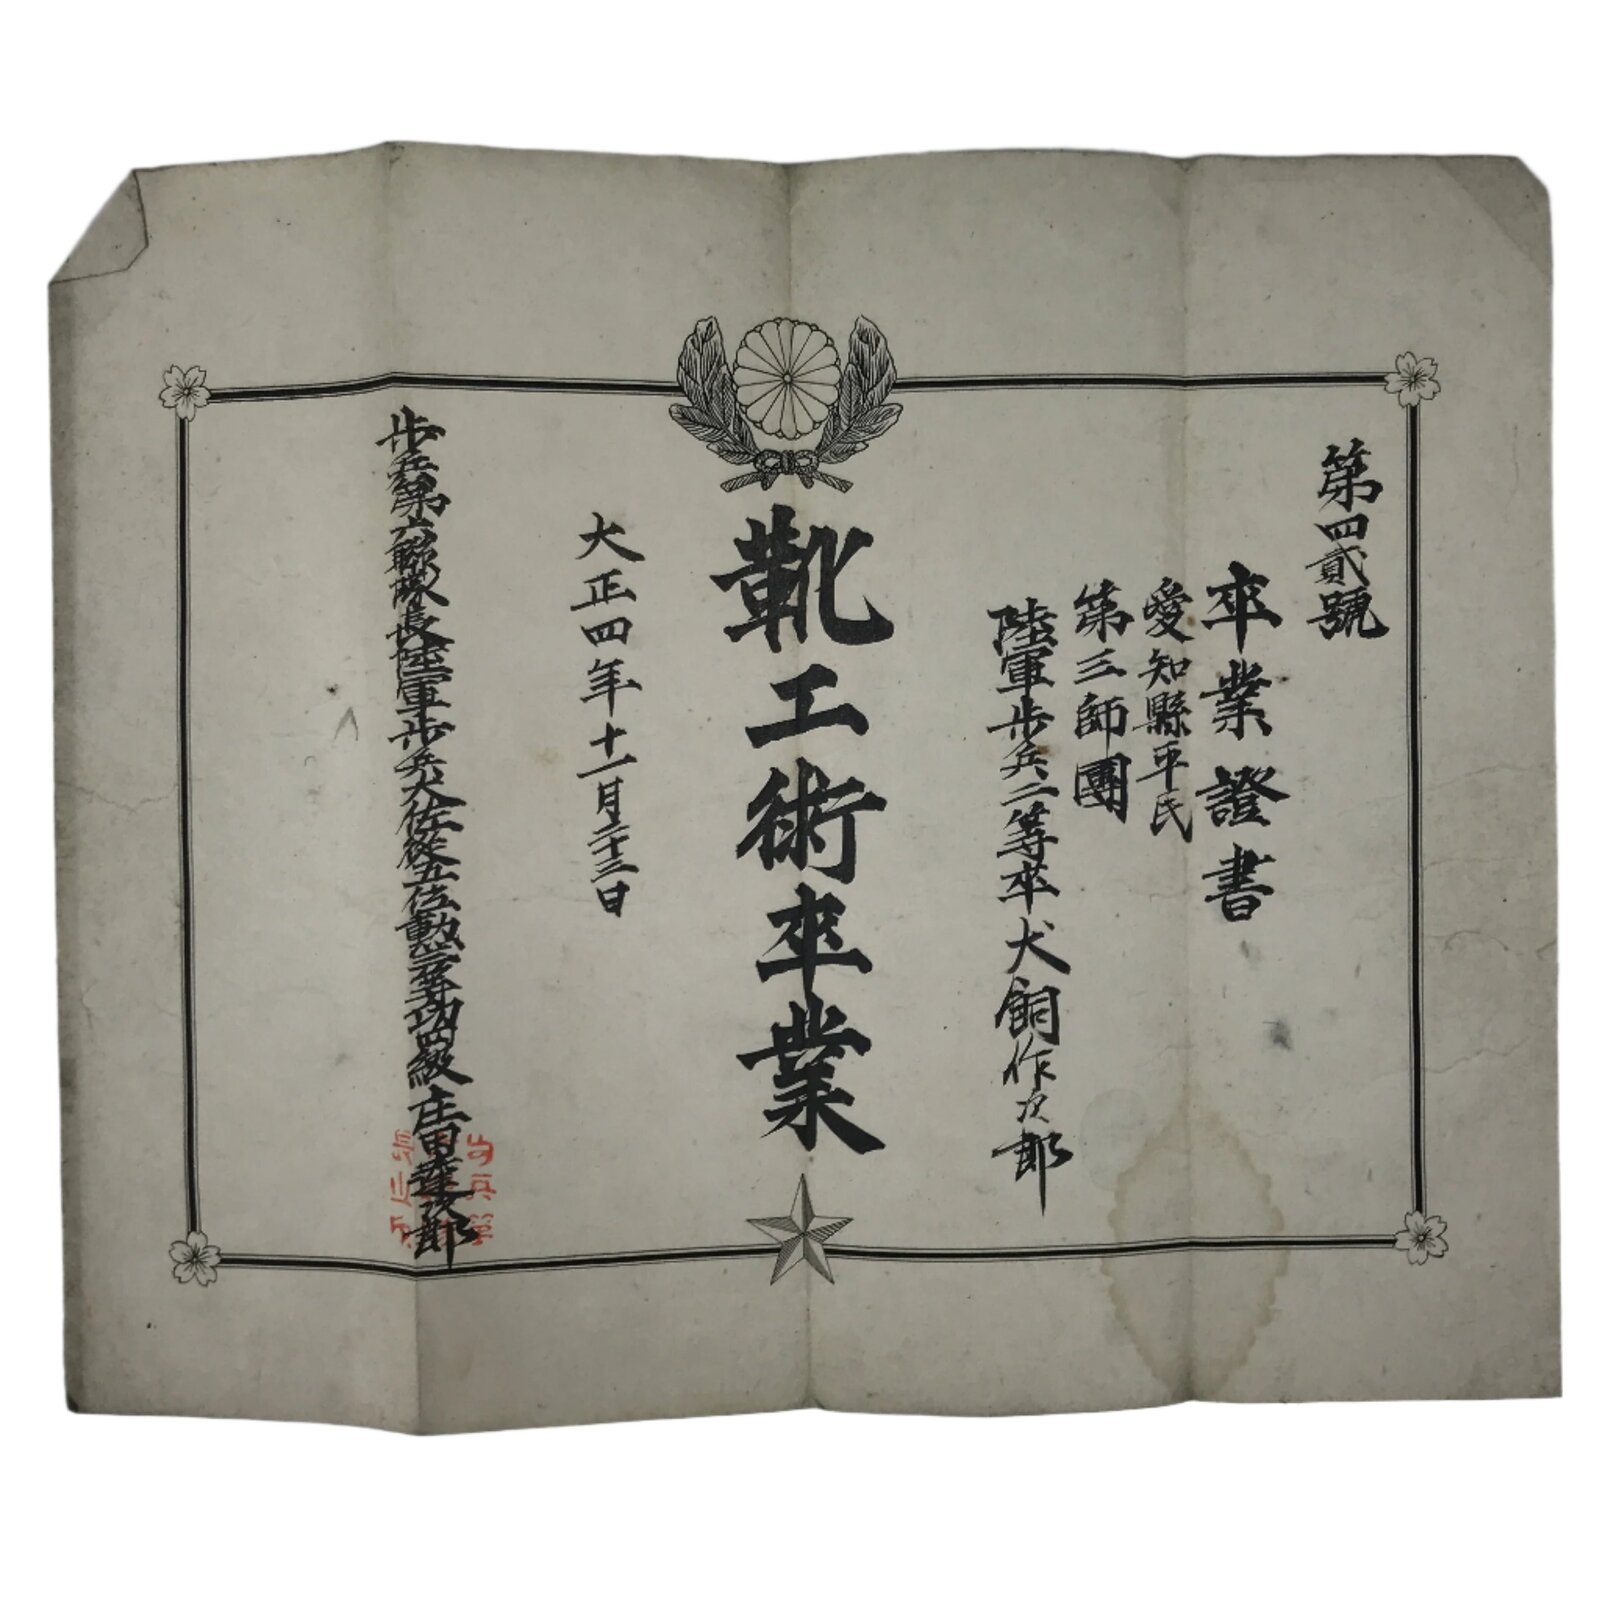 第四貳號
卒業證書
愛知縣平民
第三師團
陸軍歩兵二等卒犬飼作次郎
靴工術卒業
大正四年十一月二十三日
歩兵第六聯隊長陸軍歩兵大佐從五位勲三等功四級庄田達次郎